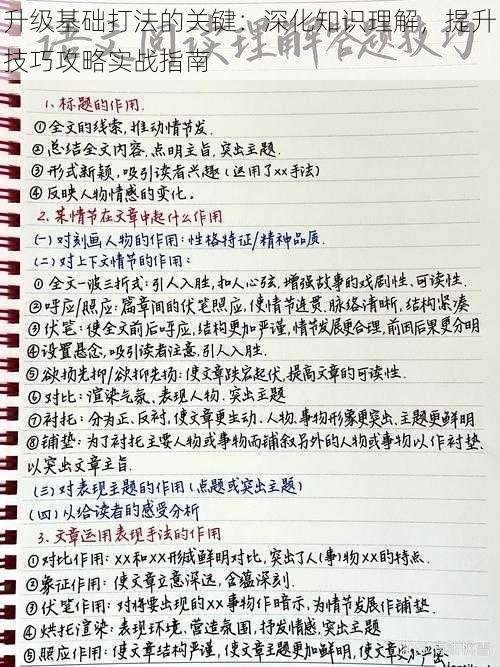 升级基础打法的关键：深化知识理解，提升
技巧攻略实战指南
语文阅读理解答题技巧
1、标题的作用.
①全文的线索,推动情节发.
②总结全文内容.点明主旨,突出主题.
③形式新颖,吸引读者兴趣(运用了xx手法)
④反映人物情感的变化。
2.某情节在文章中起什么作用
(一)对刻画人物的作用:性格特征/精神品质.
(二)对上下文情节的作用:
①全文一波三折式:引人入胜,扣人心弦,增强故事的戏剧性.可读性.
②呼应/照应:篇章间的伏笔照应,使情节连贯.脉络清晰,结构紧凑
③伏笔:使全文前后呼应,结构更加严谨,情节发展更合理,前因后果更分明
④设置悬念,吸引读者注意.引人入胜.
⑤欲扬先抑/欲抑先扬:使文章跌宕起伏,提高文章的可读性.
⑥对比:渲染气氛.表现人物.突出主题
⑦衬托:分为正、反衬,使文章更生动.人物.事物形象更突出.主题更鲜明
⑧铺垫:为了衬托主要人物或事物而铺叙另外的人物或事物以作衬垫.
以突出文章主旨.
(三)对表现主题的作用(点题或突出主题)
(四)以给读者的感受分析
3.文章运用表现手法的作用
①对比作用:xx和xx形成鲜明对比,突出了人(事)物xx的特点.
②象征作用:使文章立意深远,含蕴深刻.
③伏笔作用:对将要出现的xx事物作暗示,为情节发展作铺垫.
④烘托渲染:表现环境,营造氛围,抒发情感,突出主题
⑤照应作用:使文章结构严谨,使文章主题更加鲜明,使文章